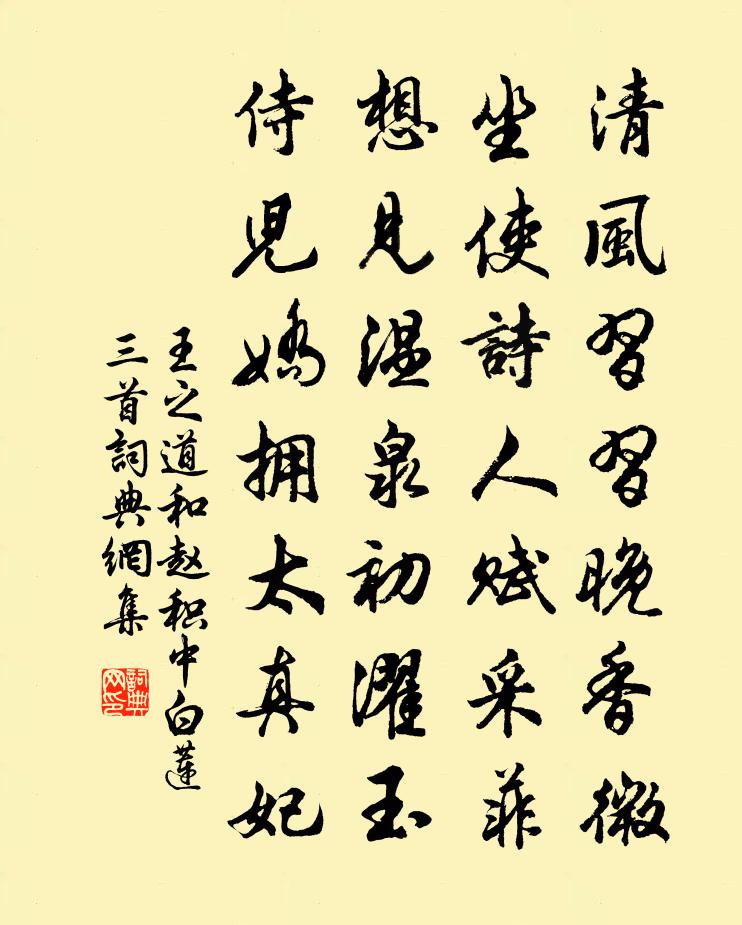 清風習習晚香微
坐使詩人賦采菲
想見温泉初濯玉
侍児嬌拥太真妃
王之道和赵积中白蓮
三首詞典網集
詞典
网印